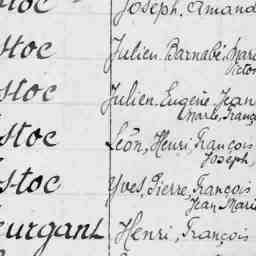 Joseph, Amand
stoc Julien Barnabé Marc
Victor
stoc Julien, Eugène, Jean
Marie, Franç
stoc Léon, Henri, François
Joseph,
stoc Yves, Pierre, François
Jean Mari
eurgant Henri, François